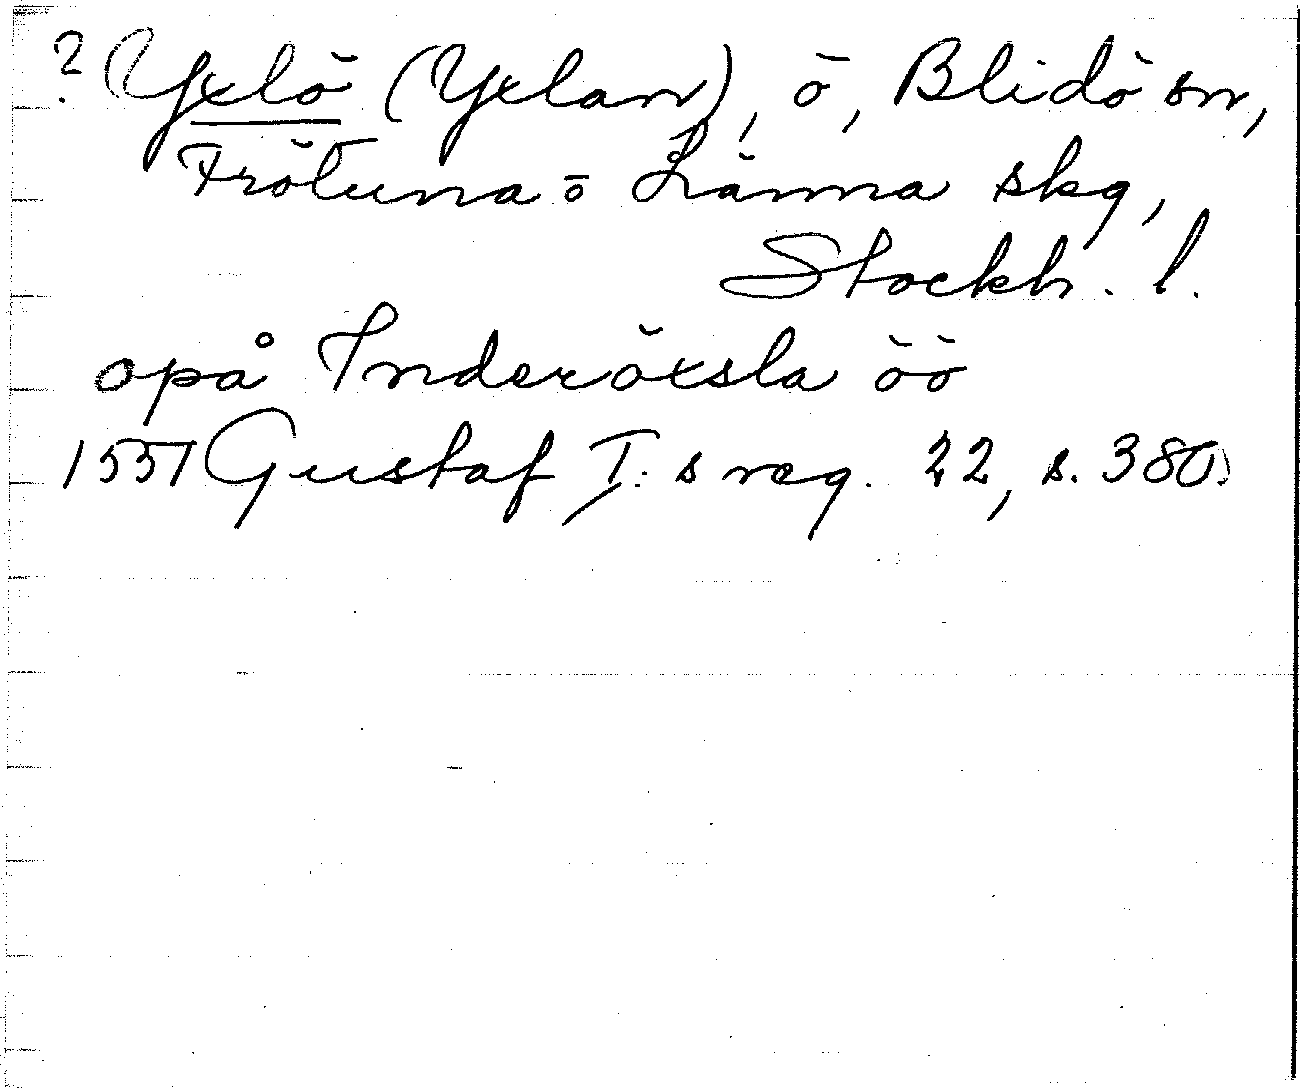 ? Yxlö (Yxlan), ö, Blidö sn,
Frötuna o Länna skg,
Stockh. l.
opå Inderöxsla öö
1551 Gustaf I:s reg. 22, s. 380